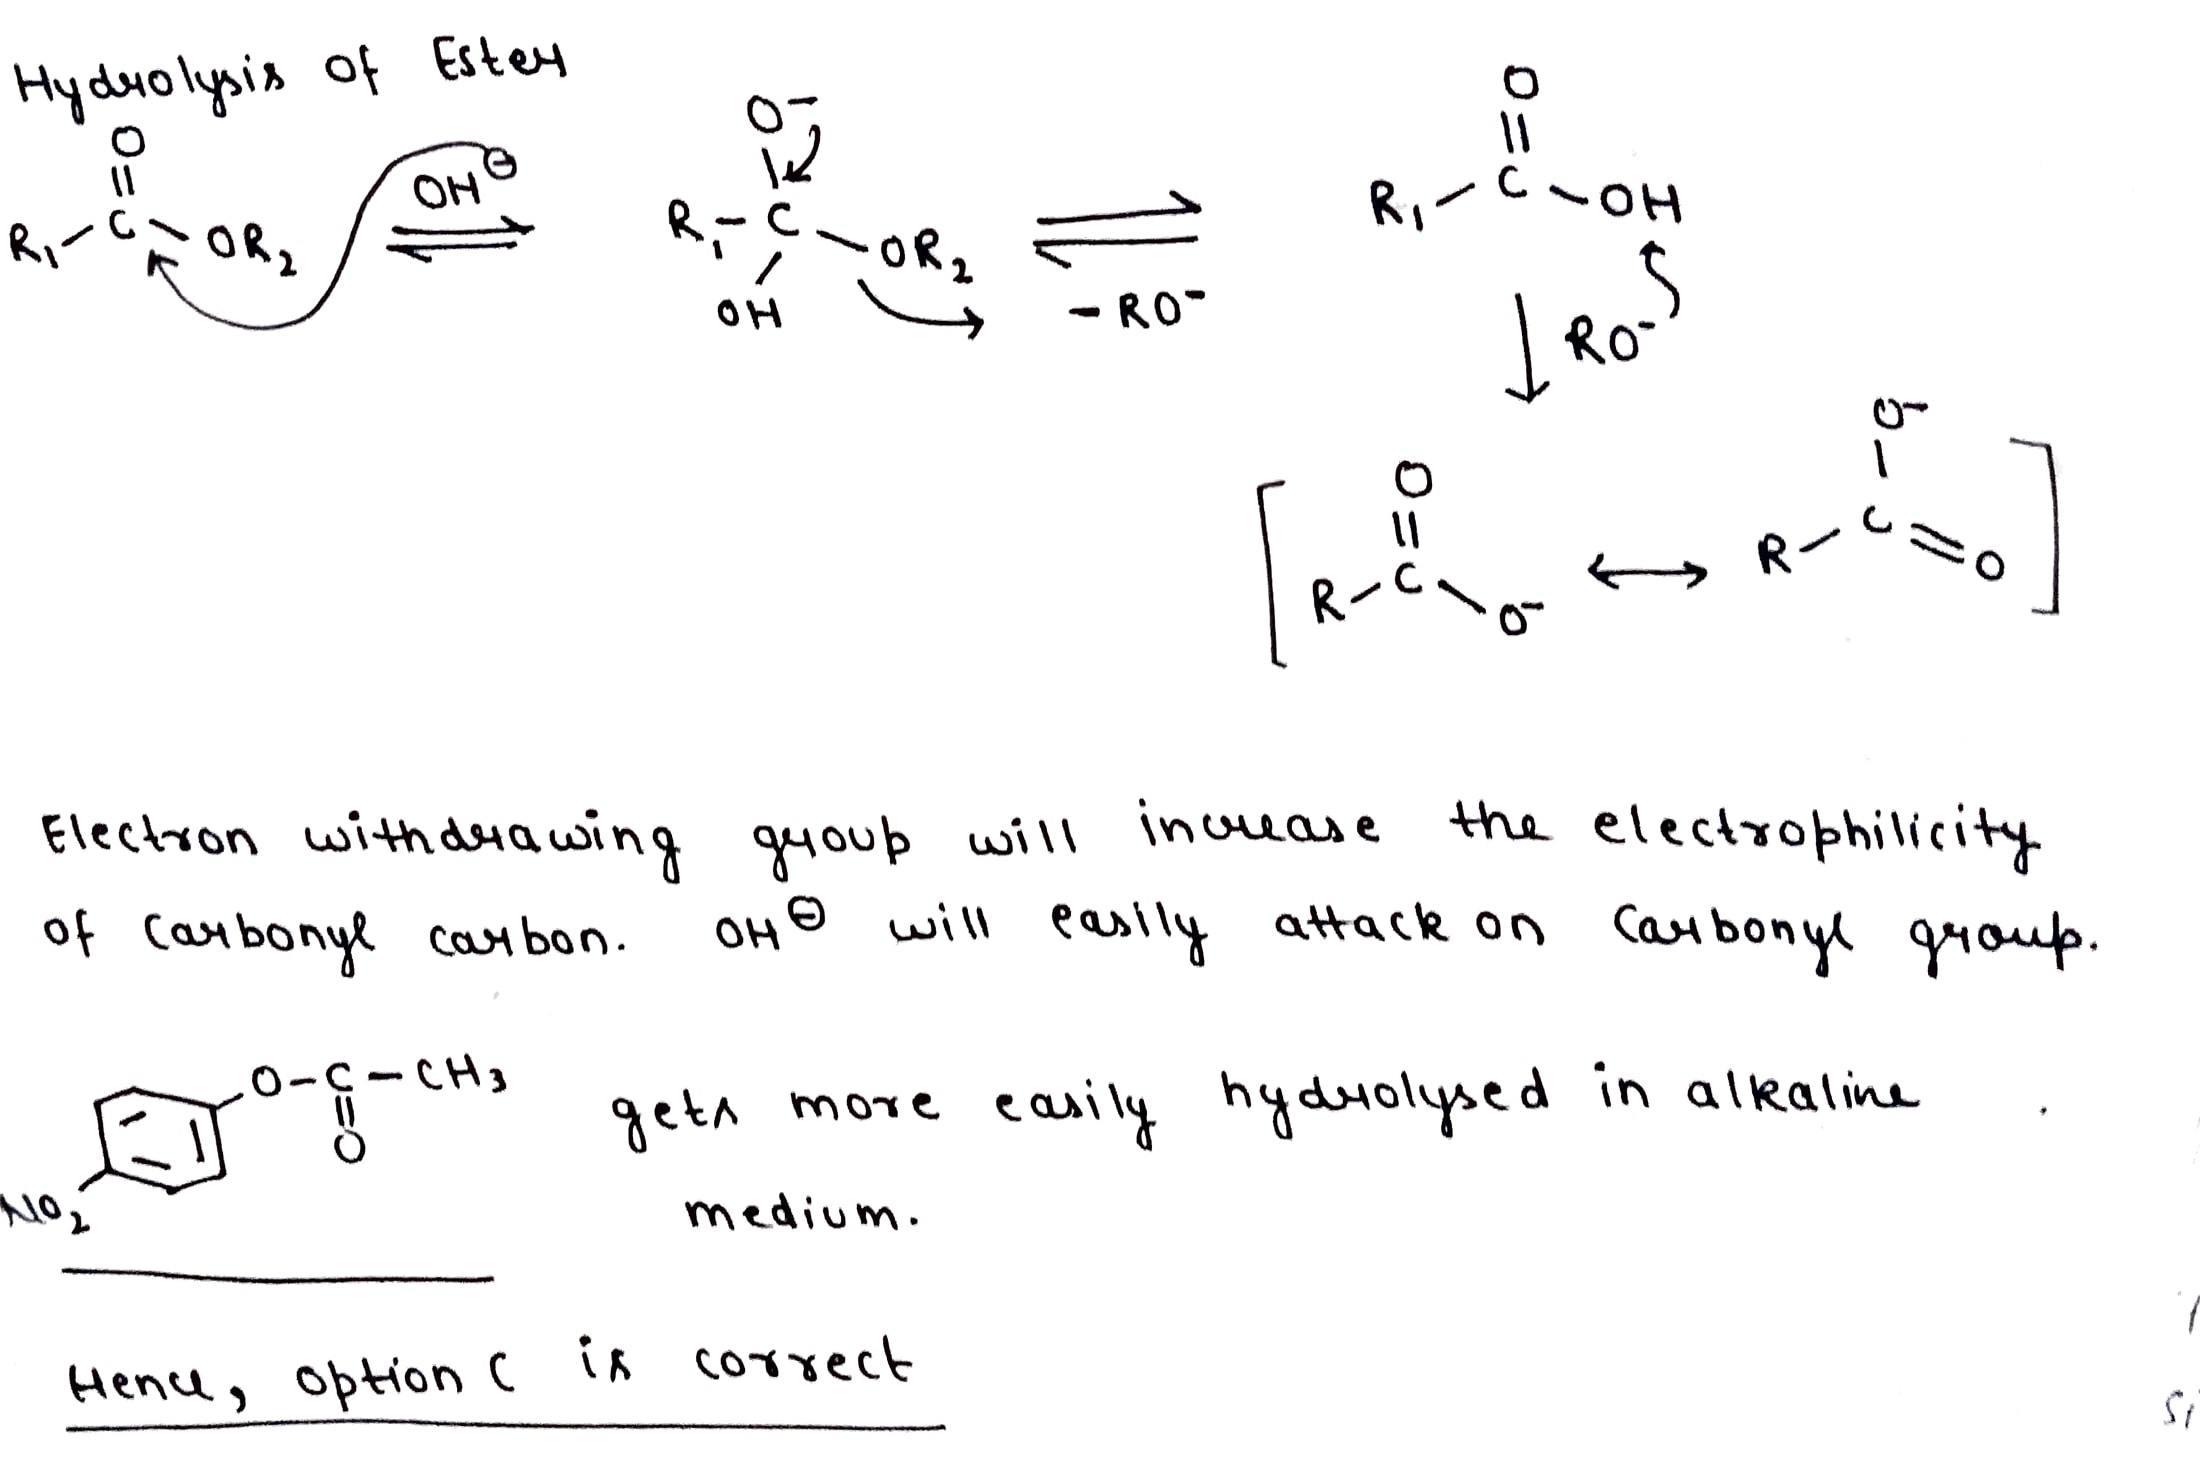 Hydrolysis of Ester
O
||
R₁-C-OR₂
OH⊖
O⁻
R₁-C-OR₂
OH
-RO⁻
O
||
R₁-C-OH
RO⁻
O
||
R-C-O⁻
O⁻
R-C=O
Electron withdrawing group will increase the electrophilicity
of carbonyl carbon. OH⊖ will easily attack on carbonyl group.
O-C-CH₃
||
O
NO₂
gets more easily hydrolysed in alkaline
medium.
Hence, option C is correct